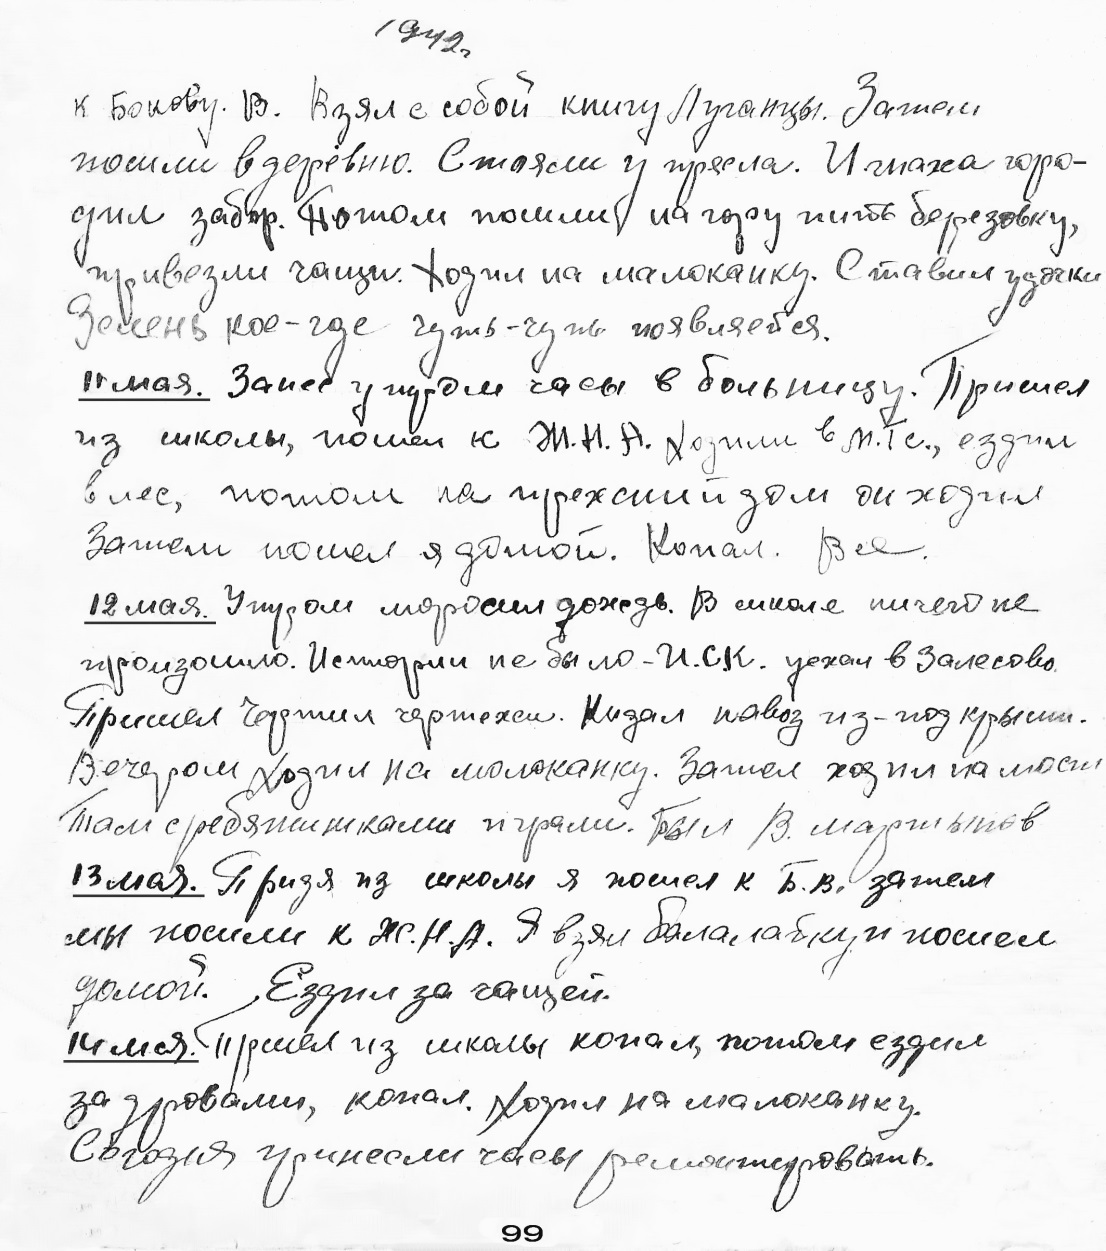 1942г.
к Бокову. В. Взял с собой книгу Луганцы. Затем
пошли в деревню. Стояли у прясла. Игнаха горо-
дил забор. Потом пошли на гору пить березовку,
привезли чащи. Ходил на малоканку. Ставил удочки
Зелень кое-где чуть-чуть появляется.
11 мая. Занес утром часы в больницу. Пришел
из школы, пошел к Ж.Н.А. Ходили в М.Тс., ездил
в лес, потом на дом он ходил
Затем пошел я домой. Копал. Все.
12 мая. Утром моросил дождь. В школе ничего не
произошло. Истории не было - И.С.К. уехал в Залесово.
Пришел Чертил чертежи. Кидал навоз из-под крыши.
Вечером Ходил на молоканку. Затем ходил на мост
Там с ребятишками играли. Был В. Мартынов
13 мая. Придя из школы я пошел к Б.В. затем
мы пошли к Ж.Н.А. Я взял балалайку и пошел
домой. Ездил за чащей.
14 мая. Пришел из школы копал, потом ездил
за дровами, копал. Ходил на малоканку.
Сегодня принесли часы ремонтировать.
99